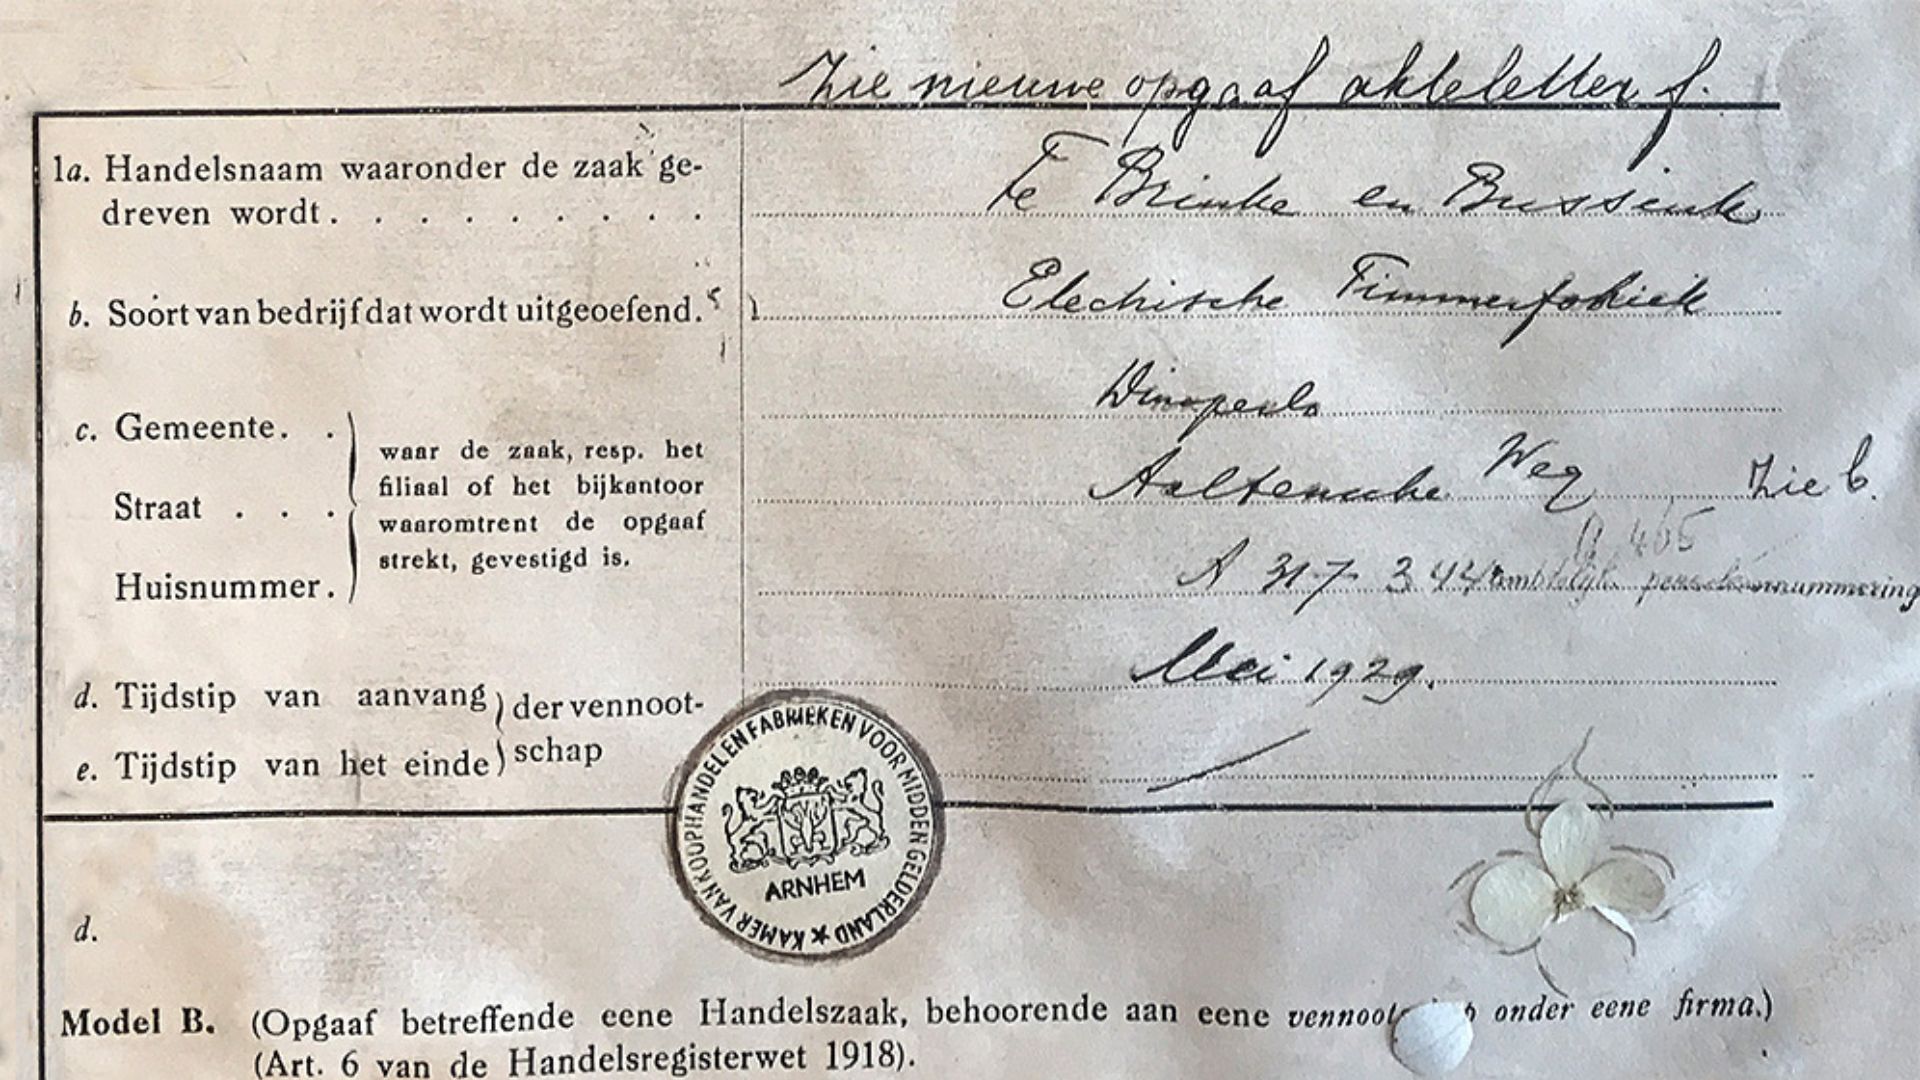 Zie nieuwe opgaaf akteletter f.
1a. Handelsnaam waaronder de zaak ge-
dreven wordt . . . . . . . . .
Te Brinke en Bussink
b. Soort van bedrijf dat wordt uitgeoefend.
Electrische Timmerfabriek
c. Gemeente. .
Dinxperlo
Straat . . .
Aaltensche Weg Zie b.
Huisnummer.
waar de zaak, resp. het
filiaal of het bijkantoor
waaromtrent de opgaaf
strekt, gevestigd is.
A 317 344
465
d. Tijdstip van aanvang
e. Tijdstip van het einde
der vennoot-
schap
Mei 1929.
KAMER VAN KOOPHANDEL EN FABRIEKEN VOOR MIDDEN GELDERLAND
ARNHEM
d.
Model B. (Opgaaf betreffende eene Handelszaak, behoorende aan eene onder eene firma.)
(Art. 6 van de Handelsregisterwet 1918).